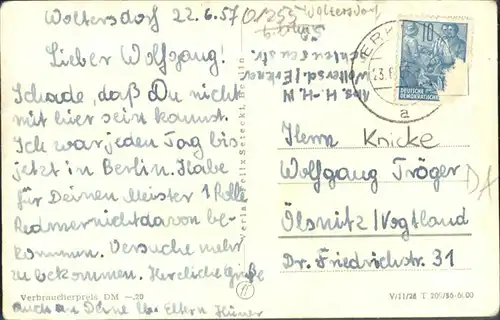 Woltersdorf 22.6.57
Lieber Wolfgang!
Schade, daß Du nicht
mit hier sein kannst.
Ich war jeden Tag bis
jetzt in Berlin. Habe
für Deinen Meister 1 Rolle
Redmer nicht davon be-
kommen. Versuche mehr
zu bekommen. Herzliche Grüße
auch an Deine lb. Eltern
Verbraucherpreis DM -.20
Verlag Felix Setecki, Berlin
0/255 Woltersdorf
Abs. H.-H. W
Woltersd/Erkner
Schleusenstr.
ERK
23.6
a
10
DEUTSCHE
DEMOKRATISCHE
Herrn Knicke
Wolfgang Tröger
Ölsnitz/Vogtland
Dr. Friedrichstr. 31
V/11/28 T 209/56 6000